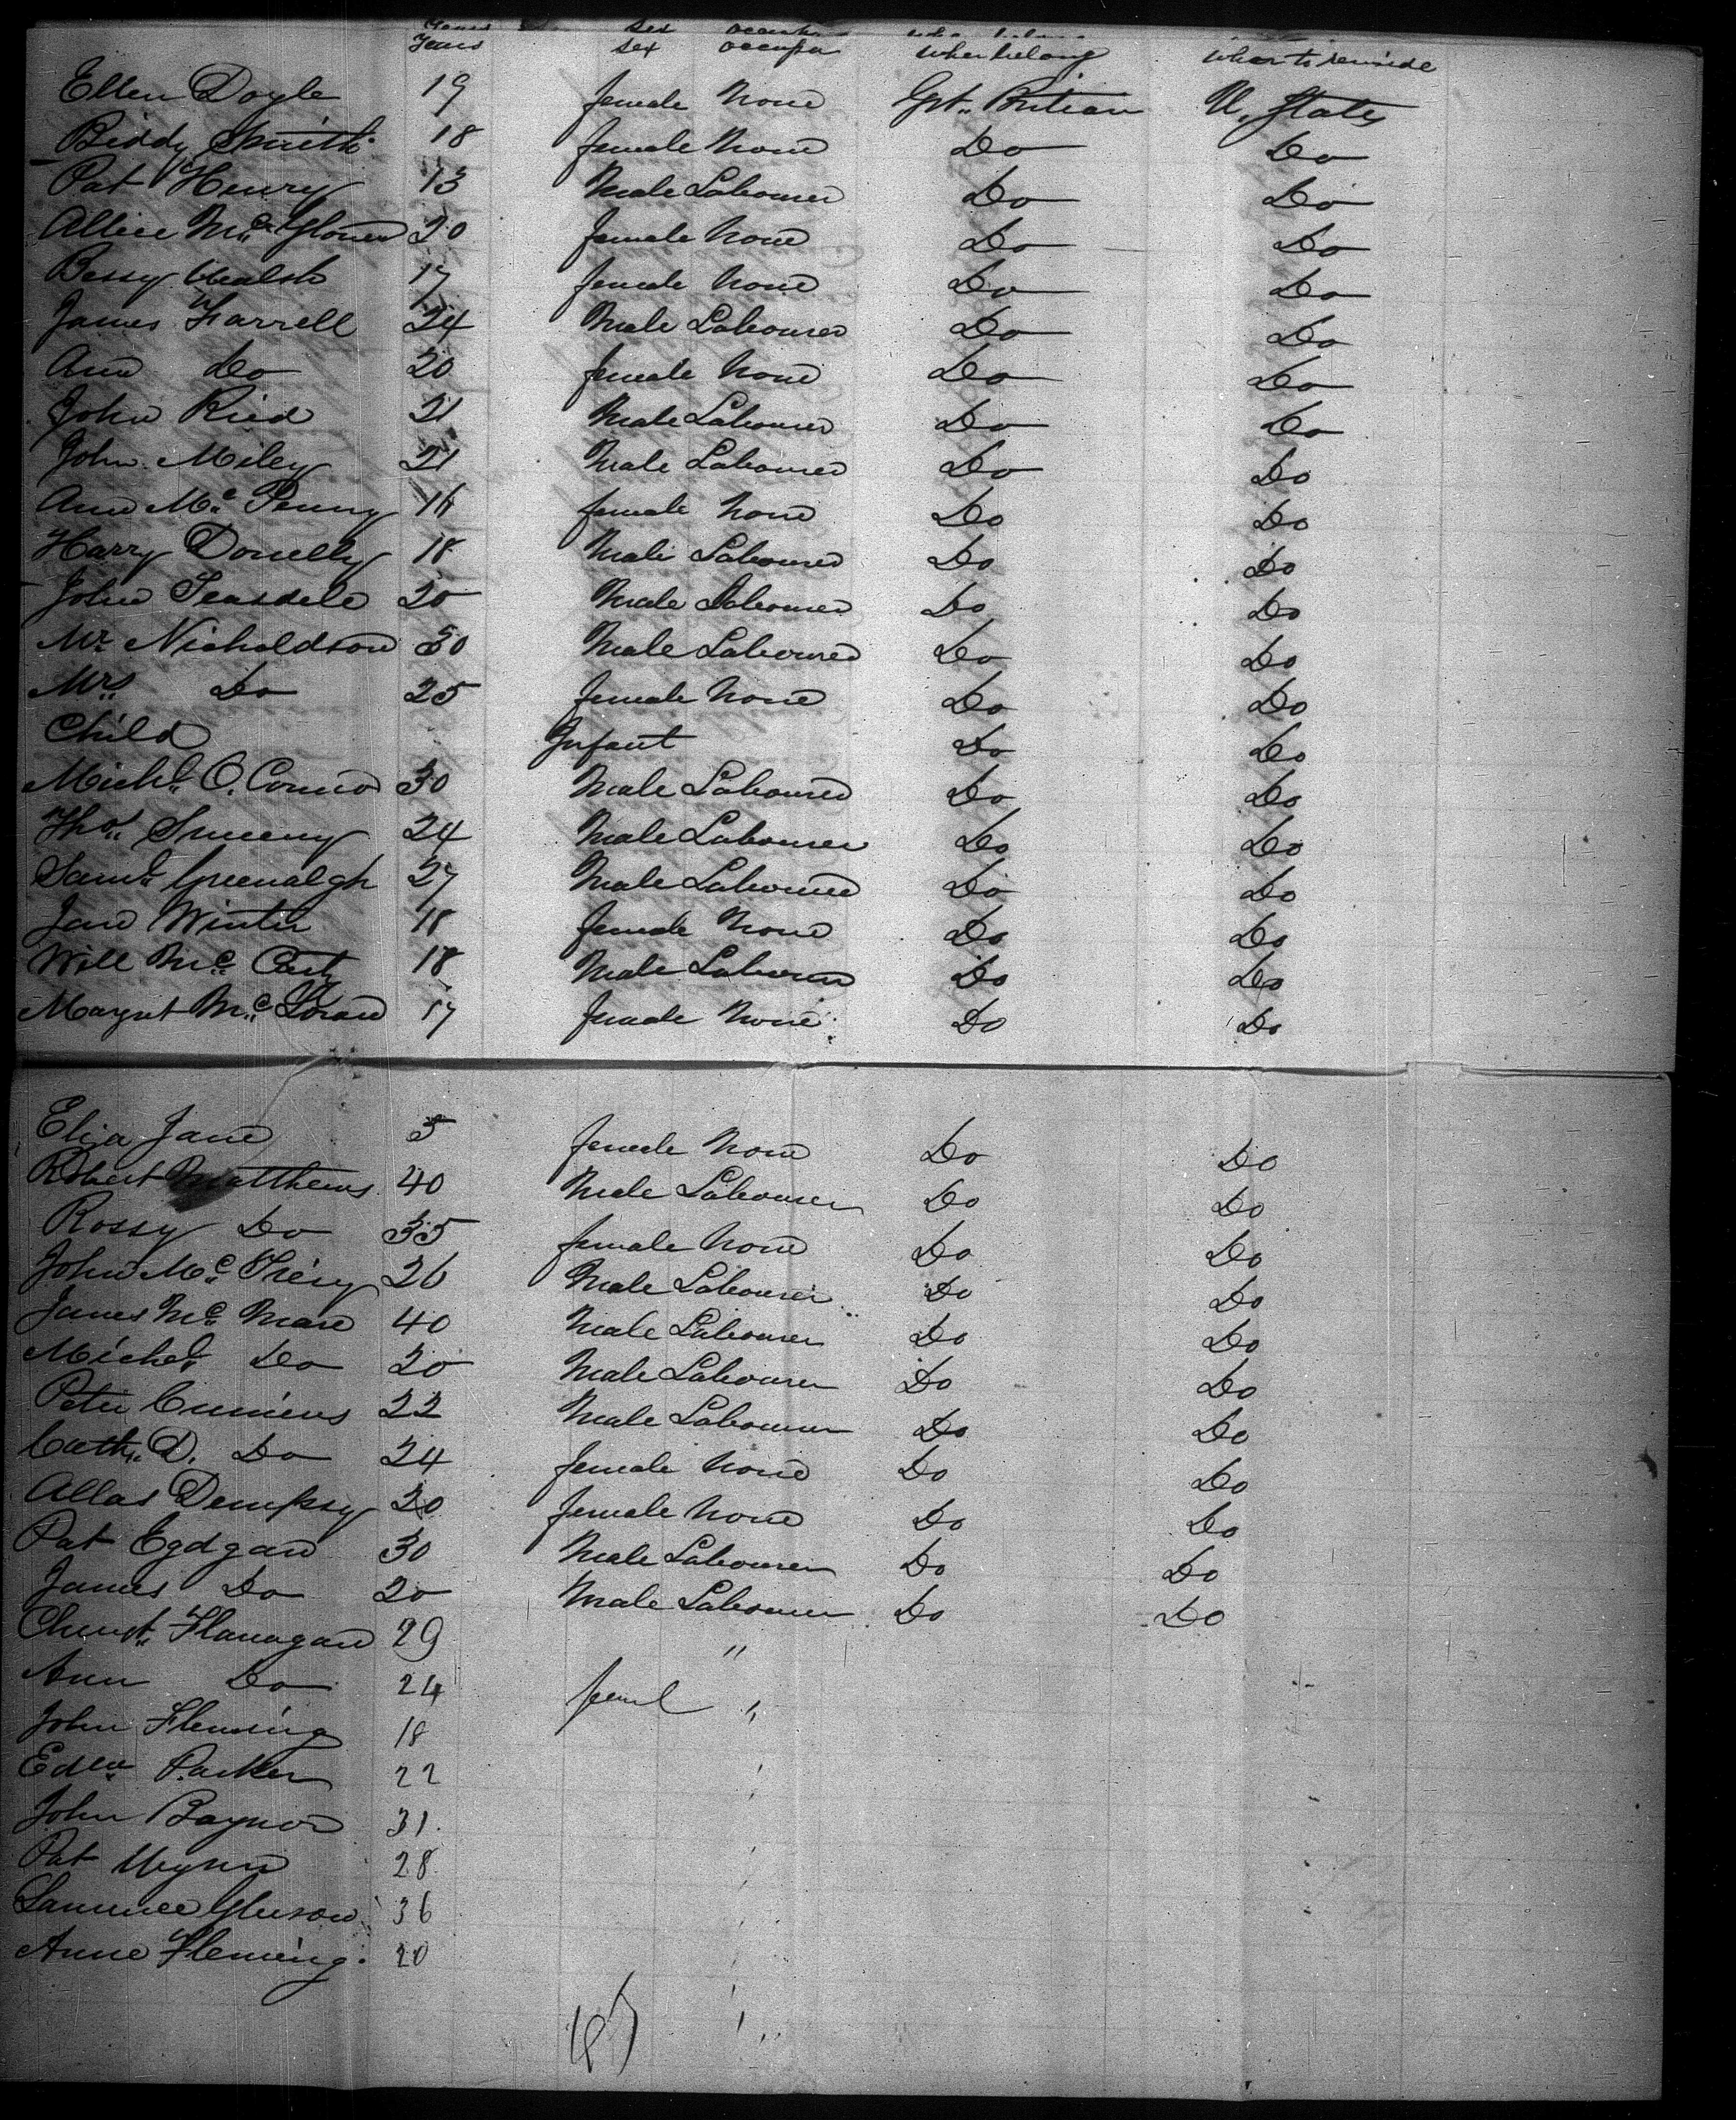 Years sex occupa wher belong wher to reside
Ellen Doyle 19 female None Grt. Britian U. States
Biddy Smith 18 female None Do Do
Pat Henry 13 Male Labourer Do Do
Allice Mc Glone 20 female None Do Do
Bessy Walsh 17 female None Do Do
James Farrell 24 Male Labourer Do Do
Ann Do 20 female None Do Do
John Ried 21 Male Labourer Do Do
John Miley 21 Male Labourer Do Do
Ann Mc Penny 16 female None Do Do
Harry Donelly 18 Male Labourer Do Do
John Teasdele 20 Male Labourer Do Do
Mr Nicholdson 30 Male Labourer Do Do
Mrs Do 25 female None Do Do
Child Infant Do Do
Michl. O. Connor 30 Male Labourer Do Do
Thos. Smeeny 24 Male Labourer Do Do
Saml. Greenalgh 27 Male Labourer Do Do
Jane Winter 18 female None Do Do
Will Mc Carty 18 Male Labourer Do Do
Margret Mc 17 female None Do Do
Eliza Jane 5 female None Do Do
Robert Matthews 40 Male Labourer Do Do
Rossy Do 35 female None Do Do
John Mc 26 Male Labourer Do Do
James Mc Mare 40 Male Labourer Do Do
Michel. Do 20 Male Labourer Do Do
Peter Cumiens 22 Male Labourer Do Do
Cath. D. Do 24 female None Do Do
Allas Dempsy 20 female None Do Do
Pat Egdgan 30 Male Labourer Do Do
James Do 20 Male Labourer Do Do
Flanagan 29 "
Ann Do 24 feml "
John Fleming 18
Edwd. Parker 22
John Baynor 31.
Pat Wynn 28
Laurence Gleeson 36
Anne Fleming. 20